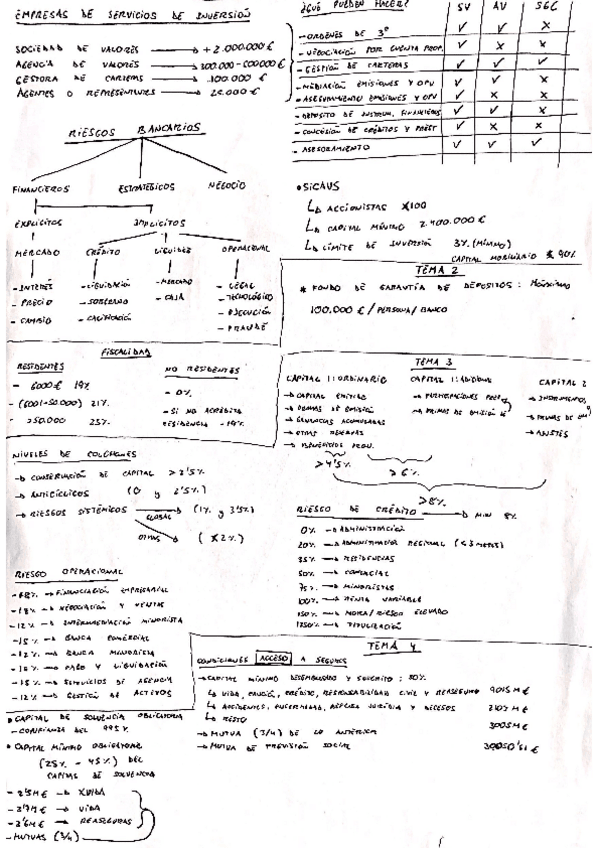 EMPRESAS DE SERVICIOS DE INVERSIÓN
SOCIEDAD DE VALORES → + 2.000.000 €
AGENCIA DE VALORES →
GESTORA DE CARTERAS → 100.000 €
AGENTES O REPRESENTANTES →
¿QUÉ PUEDEN HACER? SV AV SGC
- ORDENES DE 3º ✓ ✓ ×
- NEGOCIACIÓN POR CUENTA PROP. ✓ × ×
- GESTIÓN DE CARTERAS ✓ ✓ ✓
- MEDIACIÓN EMISIONES Y OPV ✓ ✓ ×
- ASEGURAMIENTO EMISIONES Y OPV ✓ × ×
- DEPOSITO DE INSTRUM. FINANCIEROS ✓ ✓ ×
- CONCESIÓN DE CRÉDITOS Y PREST ✓ × ×
- ASESORAMIENTO ✓ ✓ ✓
RIESGOS BANCARIOS
FINANCIEROS ESTRATÉGICOS NEGOCIO
EXPLÍCITOS IMPLÍCITOS
MERCADO CRÉDITO LIQUIDEZ OPERACIONAL
- INTERÉS - LIQUIDACIÓN - MERCADO - LEGAL
- PRECIO - SOBERANO - CAJA - TECNOLÓGICO
- CAMBIO - CALIFICACIÓN - EJECUCIÓN
- FRAUDE
• SICAVS
↳ ACCIONISTAS X100
↳ CAPITAL MÍNIMO 2.400.000 €
↳ LÍMITE DE INVERSIÓN 3% (MÍNIMO)
CAPITAL MOBILIARIO 90%
TEMA 2
* FONDO DE GARANTÍA DE DEPOSITOS: MÁXIMO
100.000 € / PERSONA / BANCO
FISCALIDAD
RESIDENTES NO RESIDENTES
- 6000 € 19% - 0%
- (6001-50.000) 21% - SI NO ACREDITA
- >50.000 23% RESIDENCIA - 19%
TEMA 3
CAPITAL 1: ORDINARIO CAPITAL 1: ADICIONAL CAPITAL 2
→ CAPITAL EMITIDO → PARTICIPACIONES PREF. → INSTRUMENTOS
→ PRIMAS DE EMISIÓN → PRIMAS DE EMISIÓN → PRIMAS DE
→ GANANCIAS ACUMULADAS → AJUSTES
→ OTRAS RESERVAS
→ BENEFICIOS PROV.
>4'5% >6%
>8%
NIVELES DE COLCHONES
→ CONSERVACIÓN DE CAPITAL > 2'5%
→ ANTICÍCLICOS (0 y 2'5%)
→ RIESGOS SISTÉMICOS → GLOBAL (1% y 3'5%)
OTRAS (2%)
RIESGO DE CRÉDITO → MIN 8%
0% → ADMINISTRACIÓN
20% → ADMINISTRACIÓN REGIONAL (<3 MESES)
35% → RESIDENCIAS
50% → COMERCIAL
75% → MINORISTAS
100% → RENTA VARIABLE
150% → MORA / RIESGO ELEVADO
1250% → TITULIZACIÓN
RIESGO OPERACIONAL
- 18% → FINANCIACIÓN EMPRESARIAL
- 18% → NEGOCIACIÓN Y VENTAS
- 12% → INTERMEDIACIÓN MINORISTA
- 15% → BANCA COMERCIAL
- 12% → BANCA MINORISTA
- 18% → PAGO Y LIQUIDACIÓN
- 15% → SERVICIOS DE AGENCIA
- 12% → GESTIÓN DE ACTIVOS
TEMA 4
CONDICIONES ACCESO A SEGUROS
→ CAPITAL MÍNIMO DESEMBOLSADO Y SUSCRITO: 50%
↳ VIDA, CAUCIÓN, CRÉDITO, RESPONSABILIDAD CIVIL Y REASEGURO 9'015 M €
↳ ACCIDENTES, ENFERMEDAD, DEFENSA JURÍDICA Y DECESOS 2'103 M €
↳ RESTO 3'005 M €
→ MUTUA (3/4) DE LO ANTERIOR
→ MUTUA DE PREVISIÓN SOCIAL 30050'61 €
• CAPITAL DE SOLVENCIA OBLIGATORIA
- CONFIANZA DEL 99'5%
• CAPITAL MÍNIMO OBLIGATORIO
(25% - 45%) DEL
CAPITAL DE SOLVENCIA
- 2'5 M € → VIDA
- 3'7 M € → VIDA
- 3'6 M € → REASEGUROS
- MUTUAS (3/4)